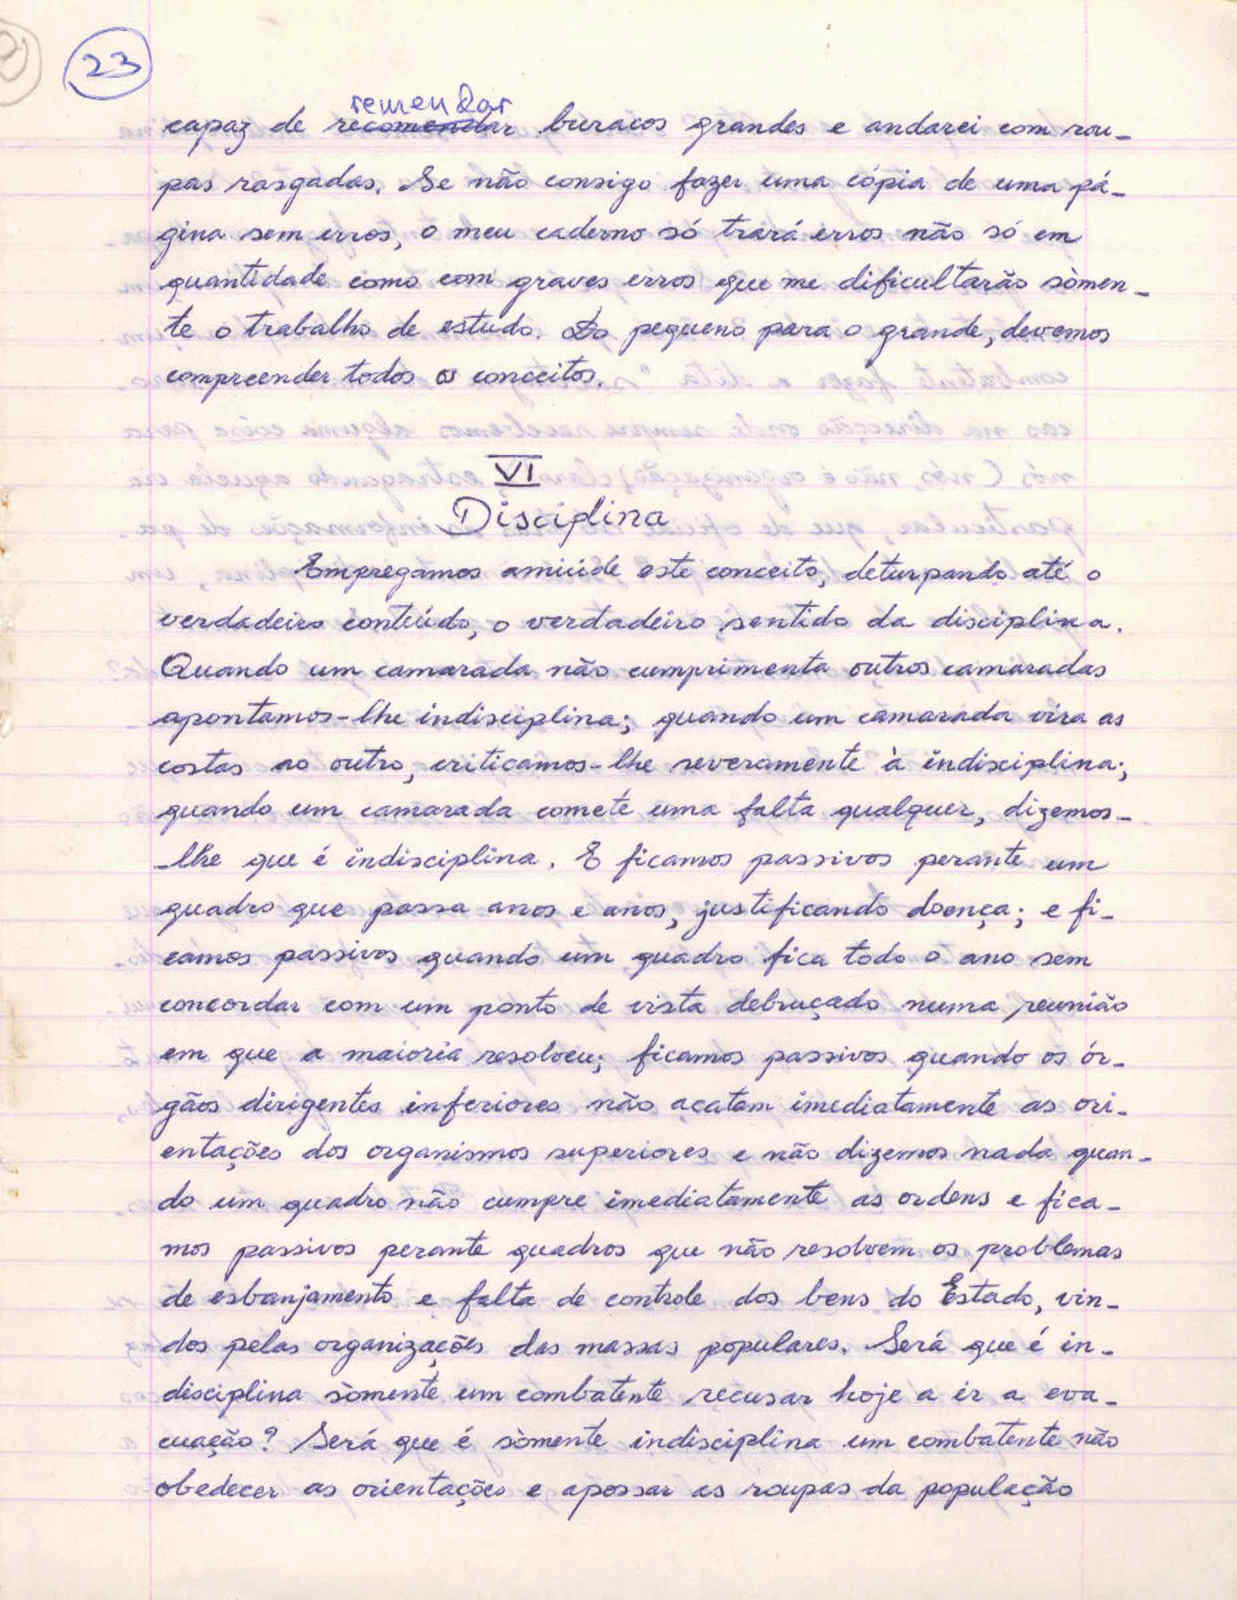 23
remendar
capaz de recomendar buracos grandes e andarei com rou-
pas rasgadas. Se não consigo fazer uma cópia de uma pá-
gina sem erros, o meu caderno só trará erros não só em
quantidade como com graves erros que me dificultarão sòmen-
te o trabalho de estudo. Do pequeno para o grande, devemos
compreender todos os conceitos.
VI
Disciplina
Empregamos amiúde este conceito, deturpando até o
verdadeiro conteúdo, o verdadeiro sentido da disciplina.
Quando um camarada não cumprimenta outros camaradas
apontamos-lhe indisciplina; quando um camarada vira as
costas ao outro, criticamos-lhe severamente à indisciplina;
quando um camarada comete uma falta qualquer, dizemos-
-lhe que é indisciplina. E ficamos passivos perante um
quadro que passa anos e anos, justificando doença; e fi-
camos passivos quando um quadro fica todo o ano sem
concordar com um ponto de vista debruçado numa reunião
em que a maioria resolveu; ficamos passivos quando os ór-
gãos dirigentes inferiores não acatam imediatamente as ori-
entações dos organismos superiores e não dizemos nada quan-
do um quadro não cumpre imediatamente as ordens e fica-
mos passivos perante quadros que não resolvem os problemas
de esbanjamento e falta de controle dos bens do Estado, vin-
dos pelas organizações das massas populares. Será que é in-
disciplina sòmente um combatente recusar hoje a ir a eva-
cuação? Será que é sòmente indisciplina um combatente não
obedecer as orientações e apossar as roupas da população